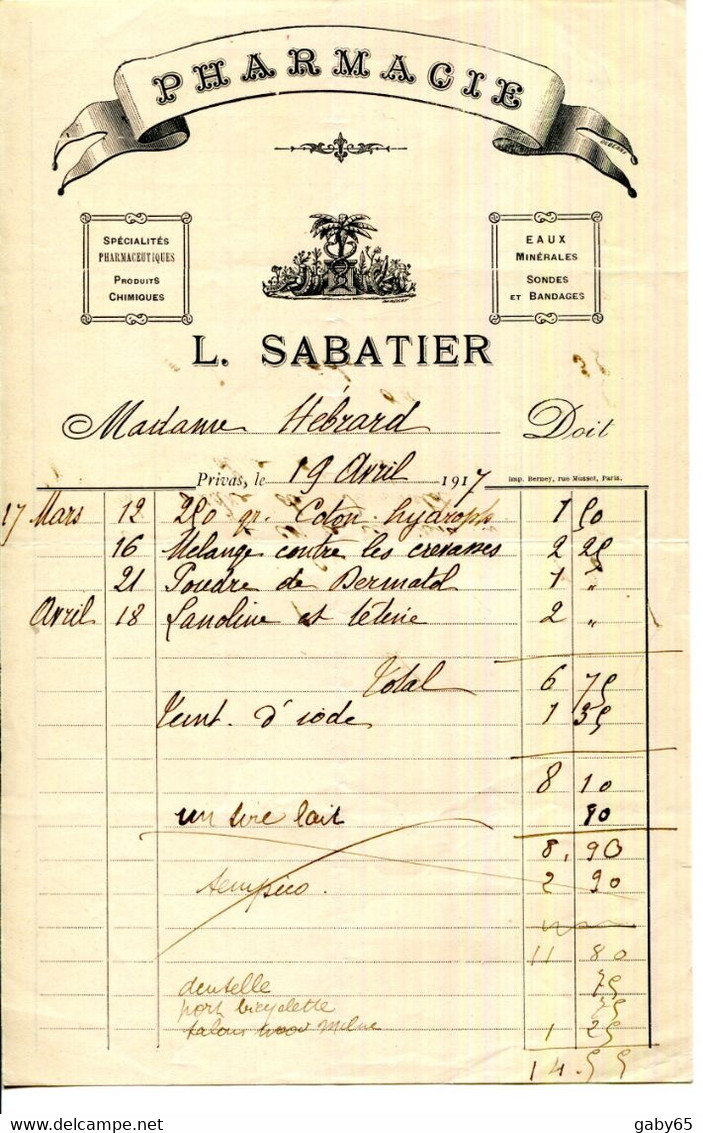 PHARMACIE
SPÉCIALITÉS
PHARMACEUTIQUES
PRODUITS
CHIMIQUES
EAUX
MINÉRALES
SONDES
ET BANDAGES
L. SABATIER
Madame Hébrard Doit
Privas, le 19 Avril 1917
Imp. Berney, rue Mussot, Paris.
17 Mars 12 250 gr. Coton hydroph 1 50
16 Mélange contre les crevasses 2 25
21 Poudre de Dermatol 1 "
Avril 18 Lanoline et tétine 2 "
Total 6 75
Teint. d'iode 1 35
8 10
un tire lait 80
8,90
2 90
11 80
dentelle 75
port bicyclette 75
talons 1 25
14.55
gaby65